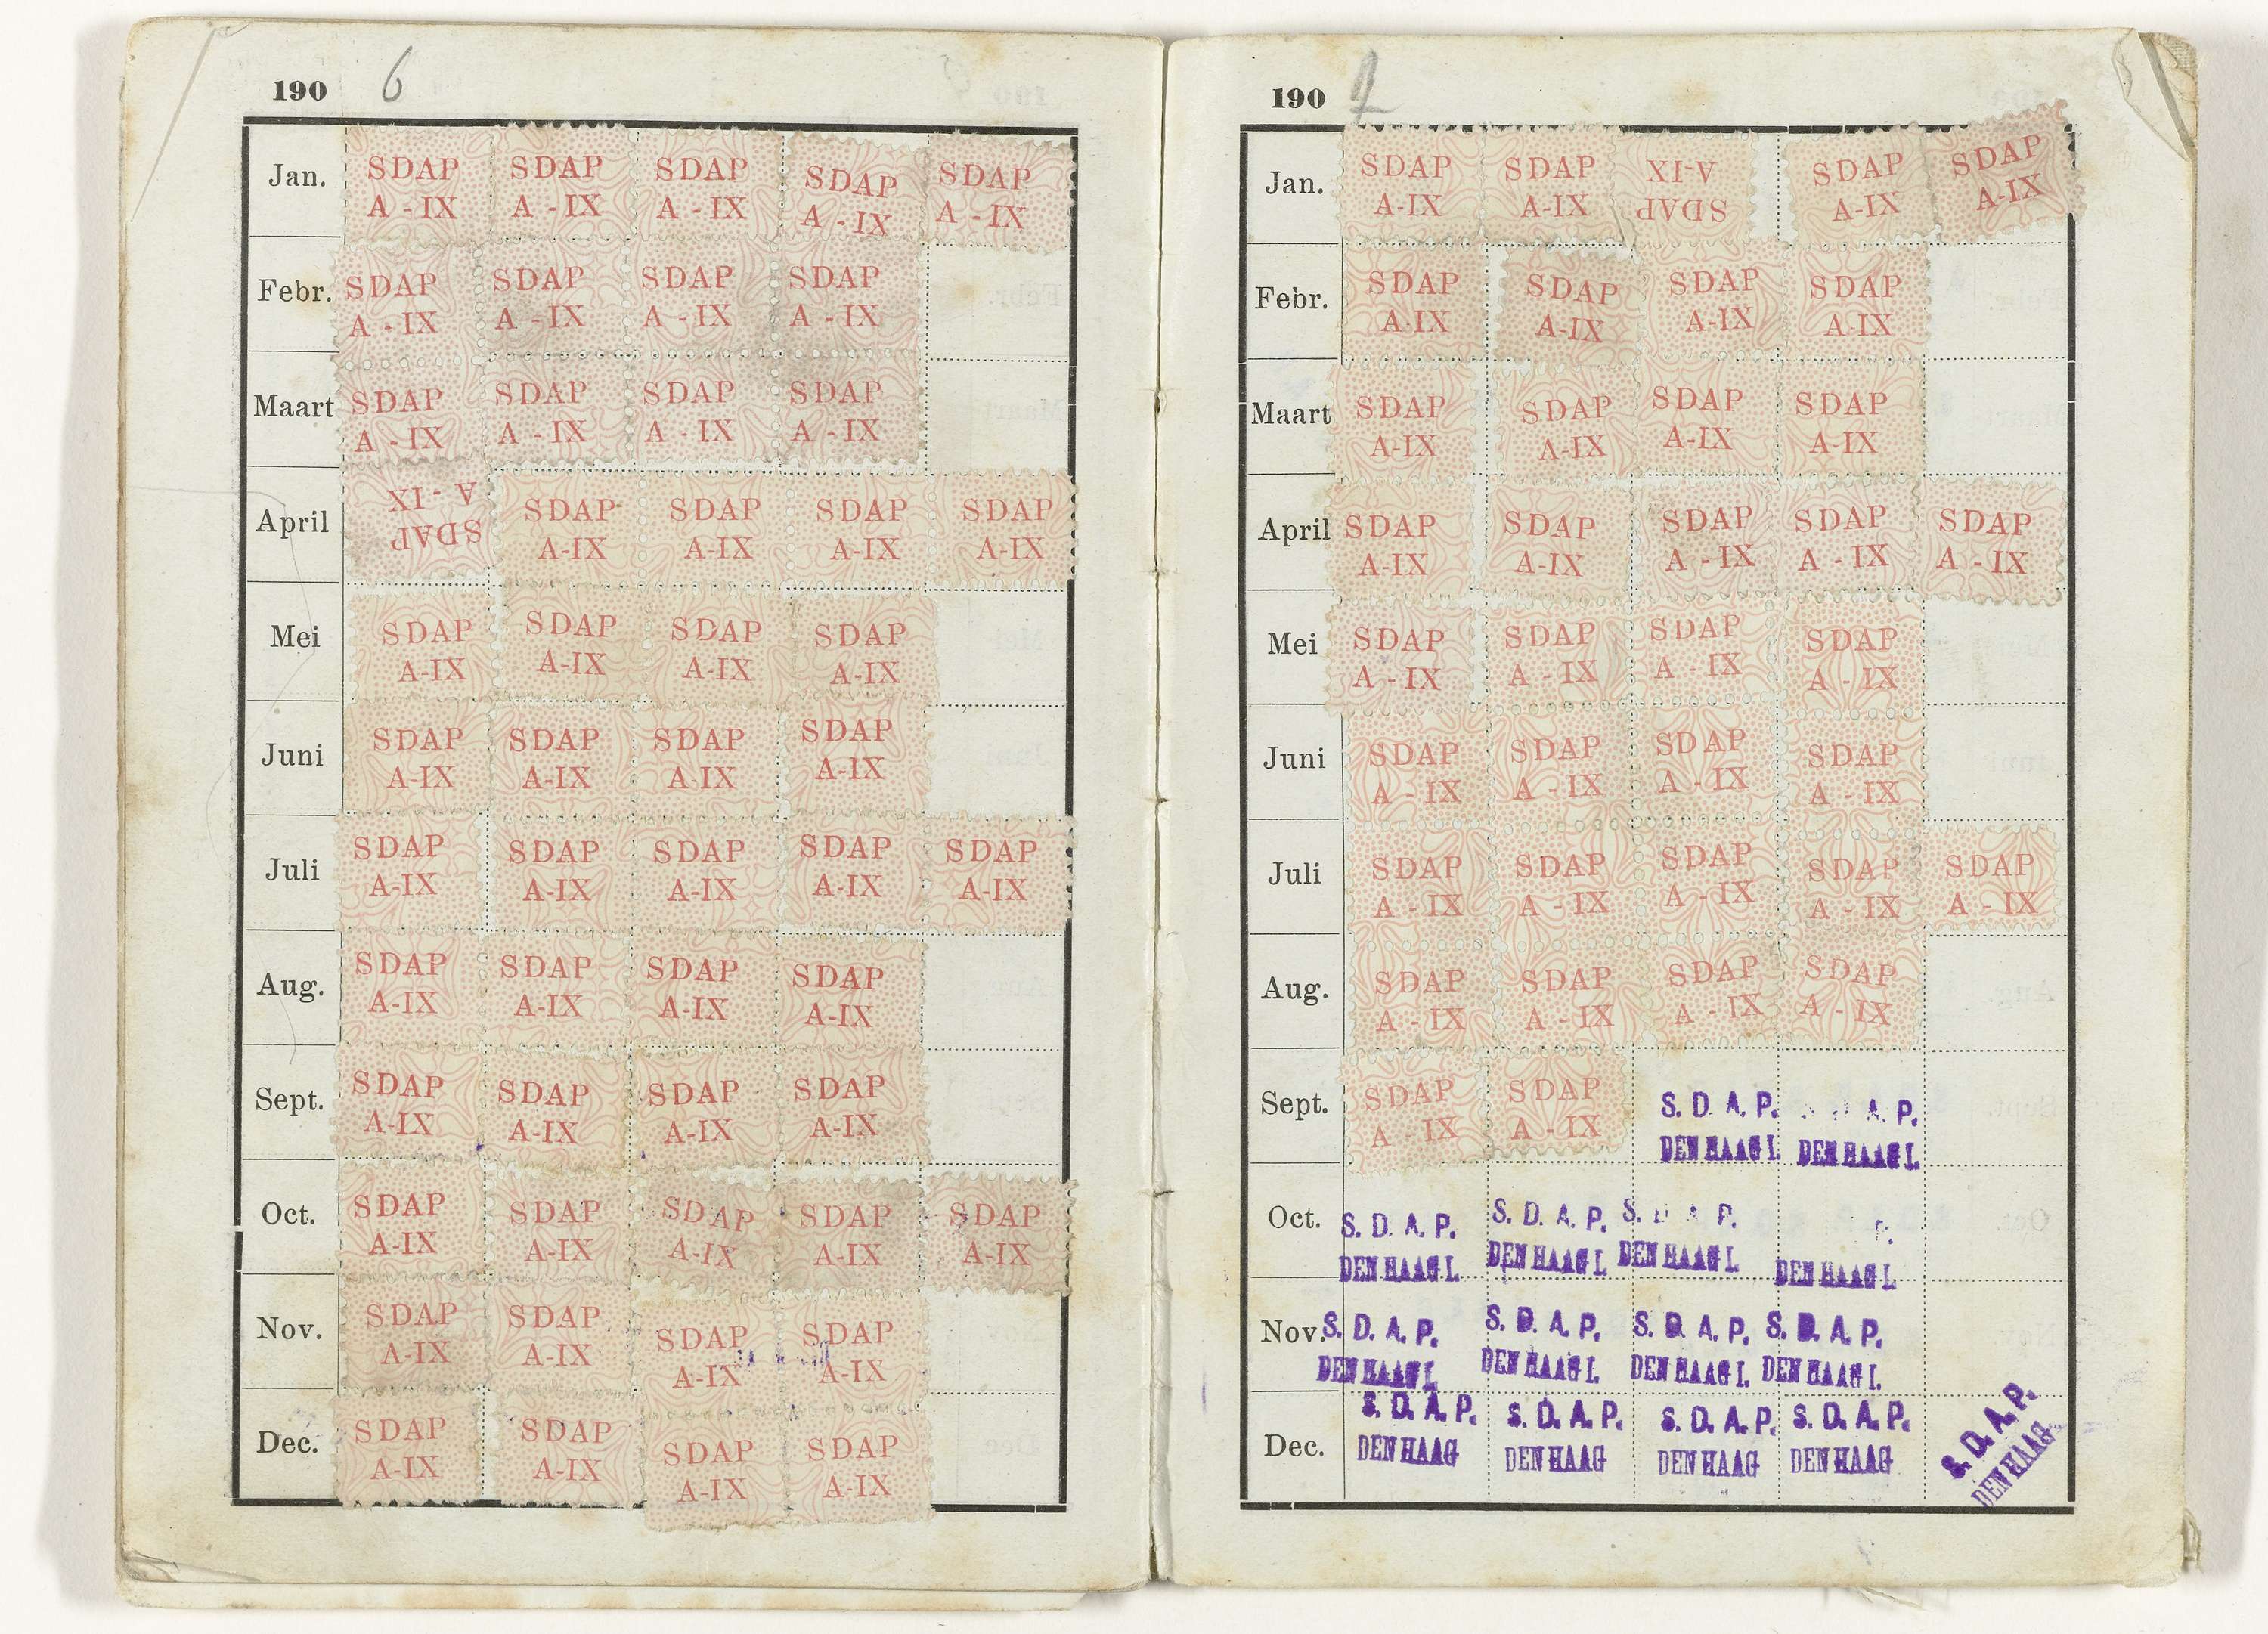 190 6
Jan. SDAP SDAP SDAP SDAP SDAP
A - IX A - IX A - IX A - IX A - IX
Febr. SDAP SDAP SDAP SDAP
A - IX A - IX A - IX A - IX
Maart SDAP SDAP SDAP SDAP
A - IX A - IX A - IX A - IX
April SDAP SDAP SDAP SDAP SDAP
A - IX A-IX A-IX A-IX A-IX
Mei SDAP SDAP SDAP SDAP
A-IX A-IX A-IX A-IX
Juni SDAP SDAP SDAP SDAP
A-IX A-IX A-IX A-IX
Juli SDAP SDAP SDAP SDAP SDAP
A-IX A-IX A-IX A-IX A-IX
Aug. SDAP SDAP SDAP SDAP
A-IX A-IX A-IX A-IX
Sept. SDAP SDAP SDAP SDAP
A-IX A-IX A-IX A-IX
Oct. SDAP SDAP SDAP SDAP SDAP
A-IX A-IX A-IX A-IX A-IX
Nov. SDAP SDAP SDAP SDAP
A-IX A-IX A-IX A-IX
Dec. SDAP SDAP SDAP SDAP
A-IX A-IX A-IX A-IX
190 7
Jan. SDAP SDAP SDAP SDAP SDAP
A-IX A-IX A-IX A-IX A-IX
Febr. SDAP SDAP SDAP SDAP
A-IX A-IX A-IX A-IX
Maart SDAP SDAP SDAP SDAP
A-IX A-IX A-IX A-IX
April SDAP SDAP SDAP SDAP SDAP
A-IX A-IX A - IX A - IX A - IX
Mei SDAP SDAP SDAP SDAP
A - IX A - IX A - IX A - IX
Juni SDAP SDAP SDAP SDAP
A - IX A - IX A - IX A - IX
Juli SDAP SDAP SDAP SDAP SDAP
A - IX A - IX A - IX A - IX A - IX
Aug. SDAP SDAP SDAP SDAP
A - IX A - IX A - IX A - IX
Sept. SDAP SDAP S. D. A. P. A. P.
A - IX A - IX DEN HAAG I. DEN HAAG I.
Oct. S. D. A. P. S. D. A. P. S. D. A. P. P.
DEN HAAG I. DEN HAAG I. DEN HAAG I. DEN HAAG I.
Nov. S. D. A. P. S. D. A. P. S. D. A. P. S. D. A. P.
DEN HAAG I. DEN HAAG I. DEN HAAG I. DEN HAAG I.
Dec. S. D. A. P. S. D. A. P. S. D. A. P. S. D. A. P. S. D. A. P.
DEN HAAG DEN HAAG DEN HAAG DEN HAAG DEN HAAG